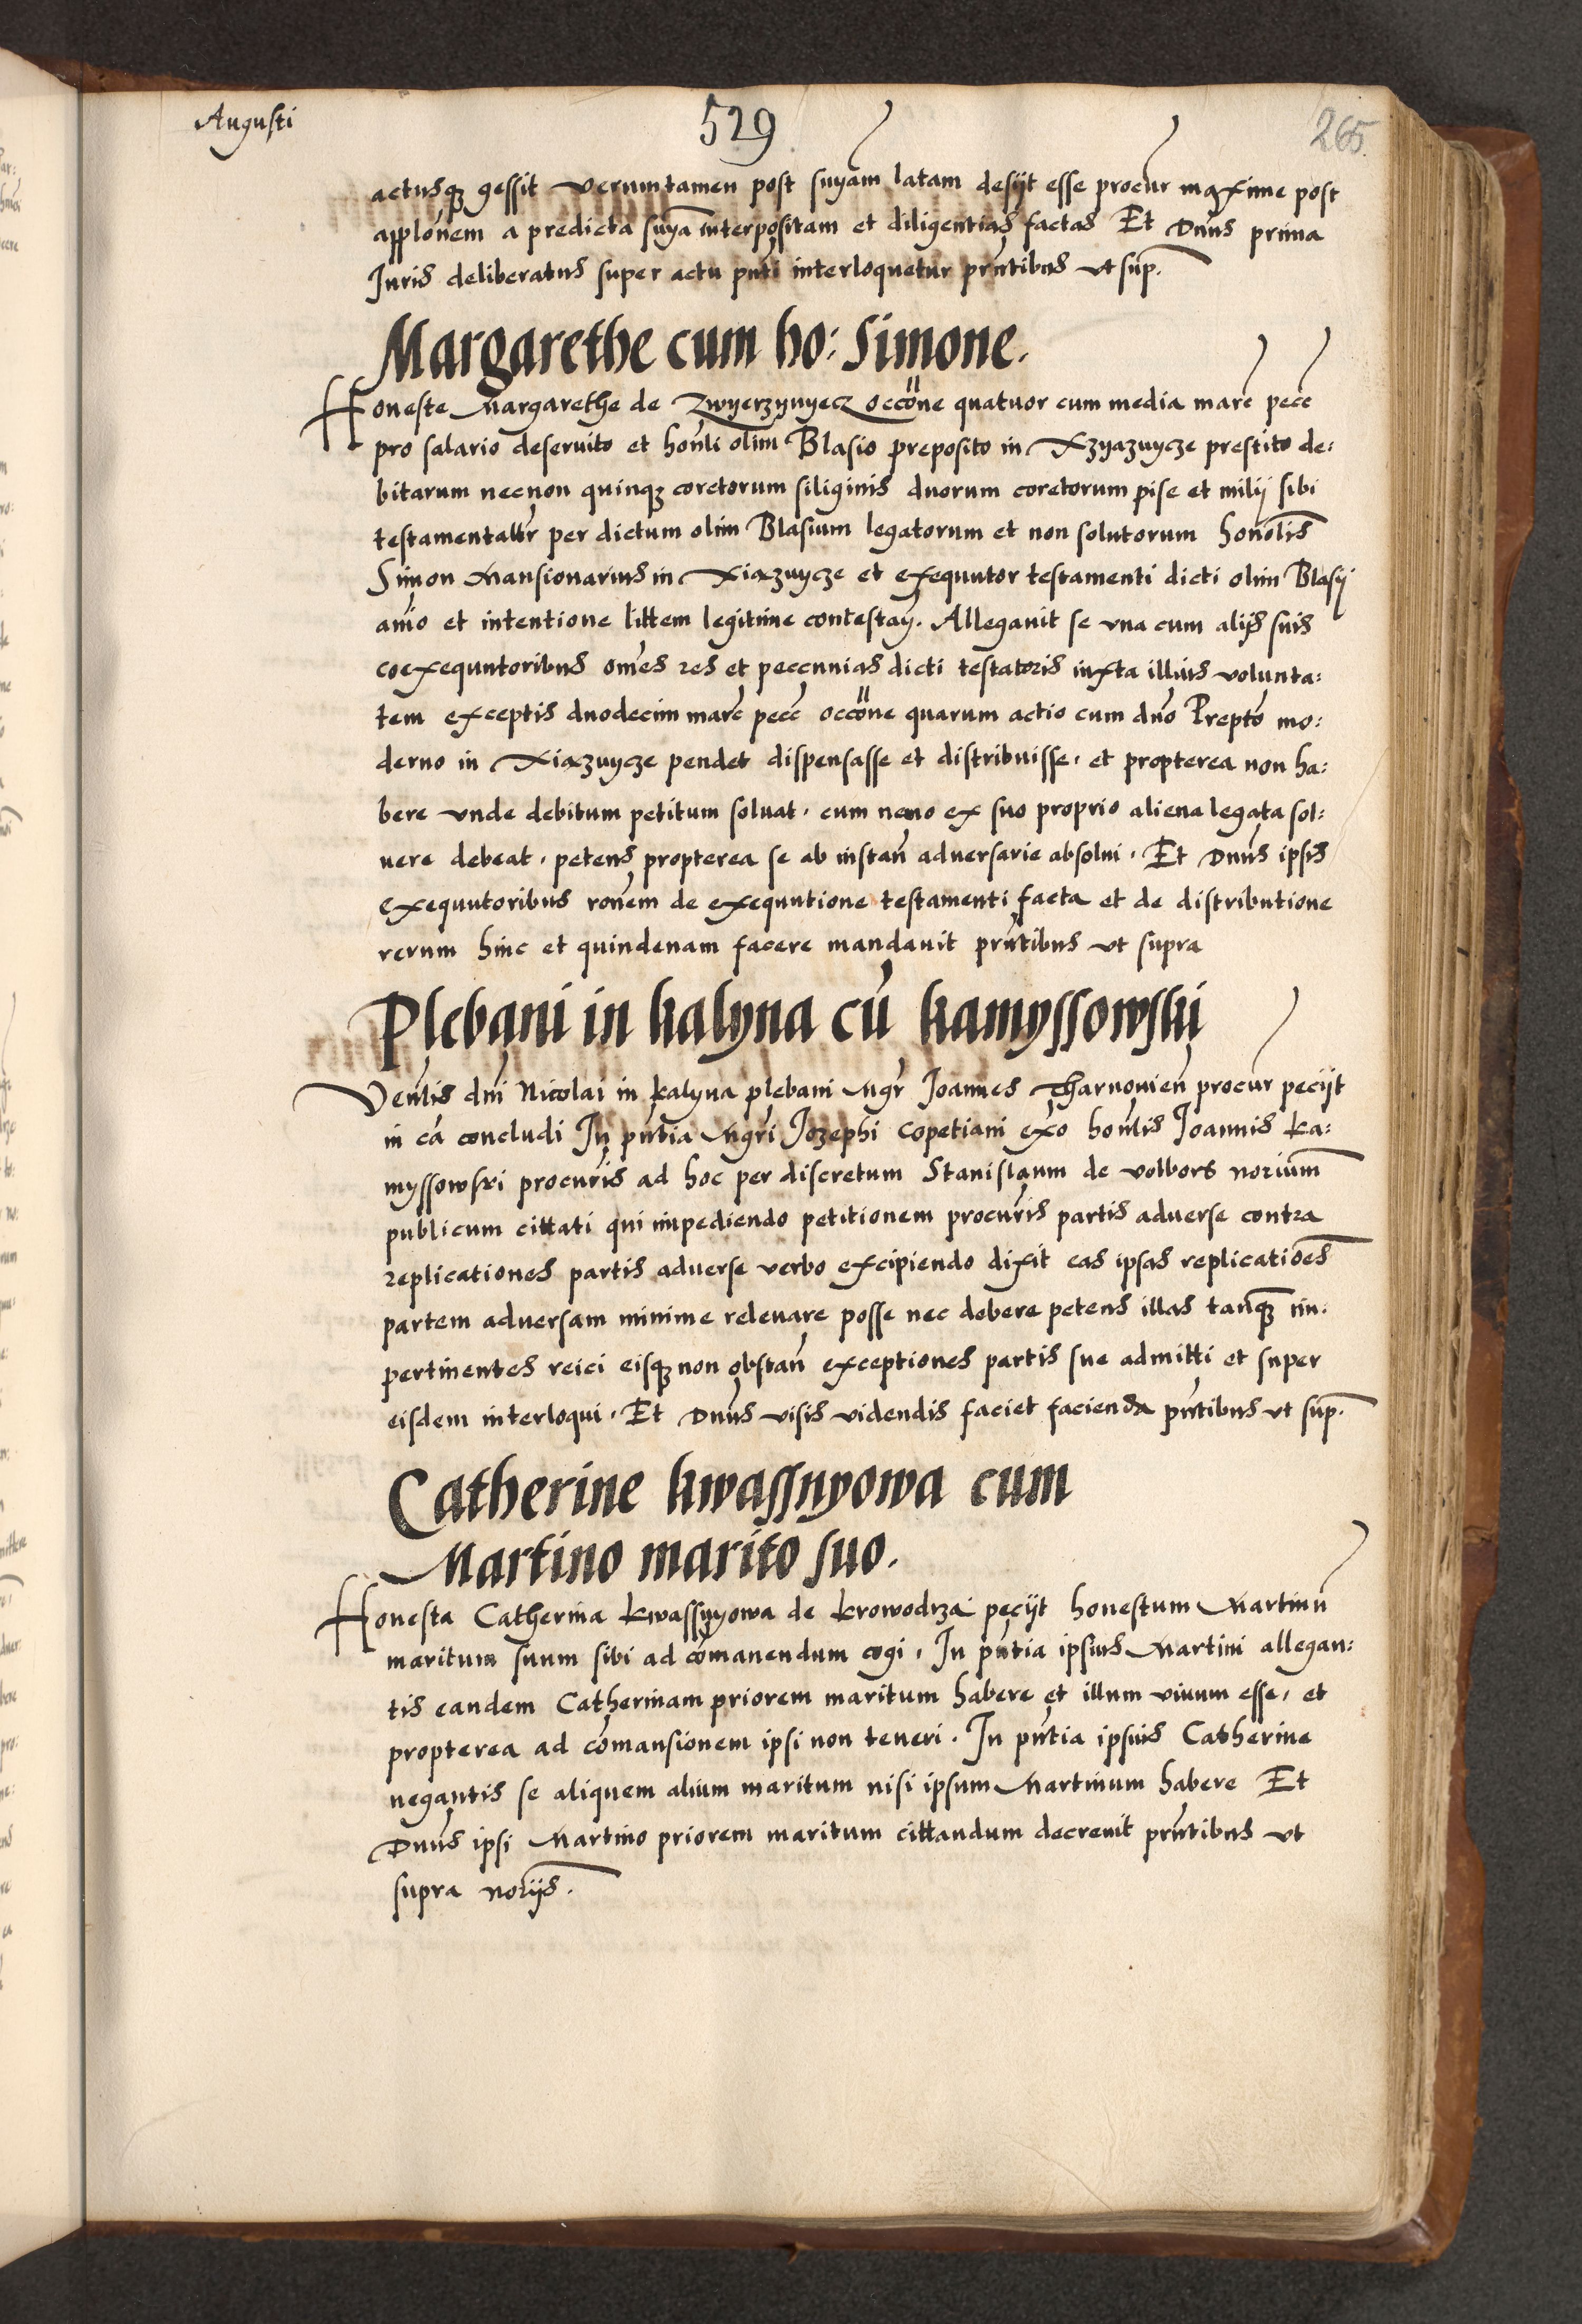 Augusti
529
265
actusq; gessit verumtamen post su̅ia̅m latam desijt esse procur̅ maxime post
applone̅m a predicta su̅ia̅ interpositam et diligentias factas Et Dnu̅s prima
Juris deliberatus super actu pn̅ti interloquetur pn̅tibus vt sup.
Margarethe cum ho: Simone.
Honeste Margarethe de Zwyerzynyecz occo̅ne quatuor cum media marc̅ pecc̅
pro salario deseruito et hon̅li olim Blasio preposito in Xzyaznycze prestito de:
bitarum necnon quinq; coretorum siliginis duorum coretorum pise et milij sibi
testamentalr̅ per dictum olim Blasium legatorum et non solutorum honolis̅
Simon Mansionarius in Xiaznycze et exequutor testamenti dicti olim Blasij
ani̅o et intentione littem legitime contestan̅. Allegauit se vna cum alijs suis
coexequutoribus om̅es res et peccunias dicti testatoris iuxta illius volunta:
tem exceptis duodecim marc̅ pecc̅ occo̅ne quarum actio cum dn̅o Prepto̅ mo:
derno in Xiaznycze pendet dispensasse et distribuisse, et propterea non ha:
bere vnde debitum petitum soluat, cum nemo ex suo proprio aliena legata sol:
uere debeat, petens propterea se ab instan̅ aduersarie absolui. Et Dnu̅s ipsis
exequutoribus ron̅em de exequutione testamenti facta et de distributione
rerum hinc et quindenam facere mandauit pn̅tibus vt supra
Plebani in kalyna cu̅ kamyssowski
Ven̅lis dn̅i Nicolai in kalyna plebani Mgr̅ Joannes Tharnouien̅ procur̅ pecijt
in ca̅ concludi In pn̅tia Mgr̅i Jozephi Copetiani ex̅o hon̅lis Joannis ka:
myssowski procur̅is ad hoc per discretum Stanislaum de volbors norium̅
publicum cittati qui impediendo petitionem procur̅is partis aduerse contra
replicationes partis aduerse verbo excipiendo dixit eas ipsas replicatioe̅s
partem aduersam minime releuare posse nec debere petens illas tanq̅; im:
pertinentes reici eisq; non obstan̅ exceptiones partis sue admitti et super
eisdem interloqui. Et Dnu̅s visis videndis faciet facienda pn̅tibus vt sup.
Catherine kwassnyowa cum
Martino marito suo.
Honesta Catherina kwassnyowa de krowodrza pecijt honestum Martinu̅
maritum suum sibi ad co̅manendum cogi. In pn̅tia ipsius Martini allegan:
tis eandem Catherinam priorem maritum habere et illum viuum esse, et
propterea ad co̅mansionem ipsi non teneri. In pn̅tia ipsius Catherine
negantis se aliquem alium maritum nisi ipsum Martinum habere Et
Dnu̅s ipsi Martino priorem maritum cittandum decreuit pn̅tibus vt
supra norijs̅.